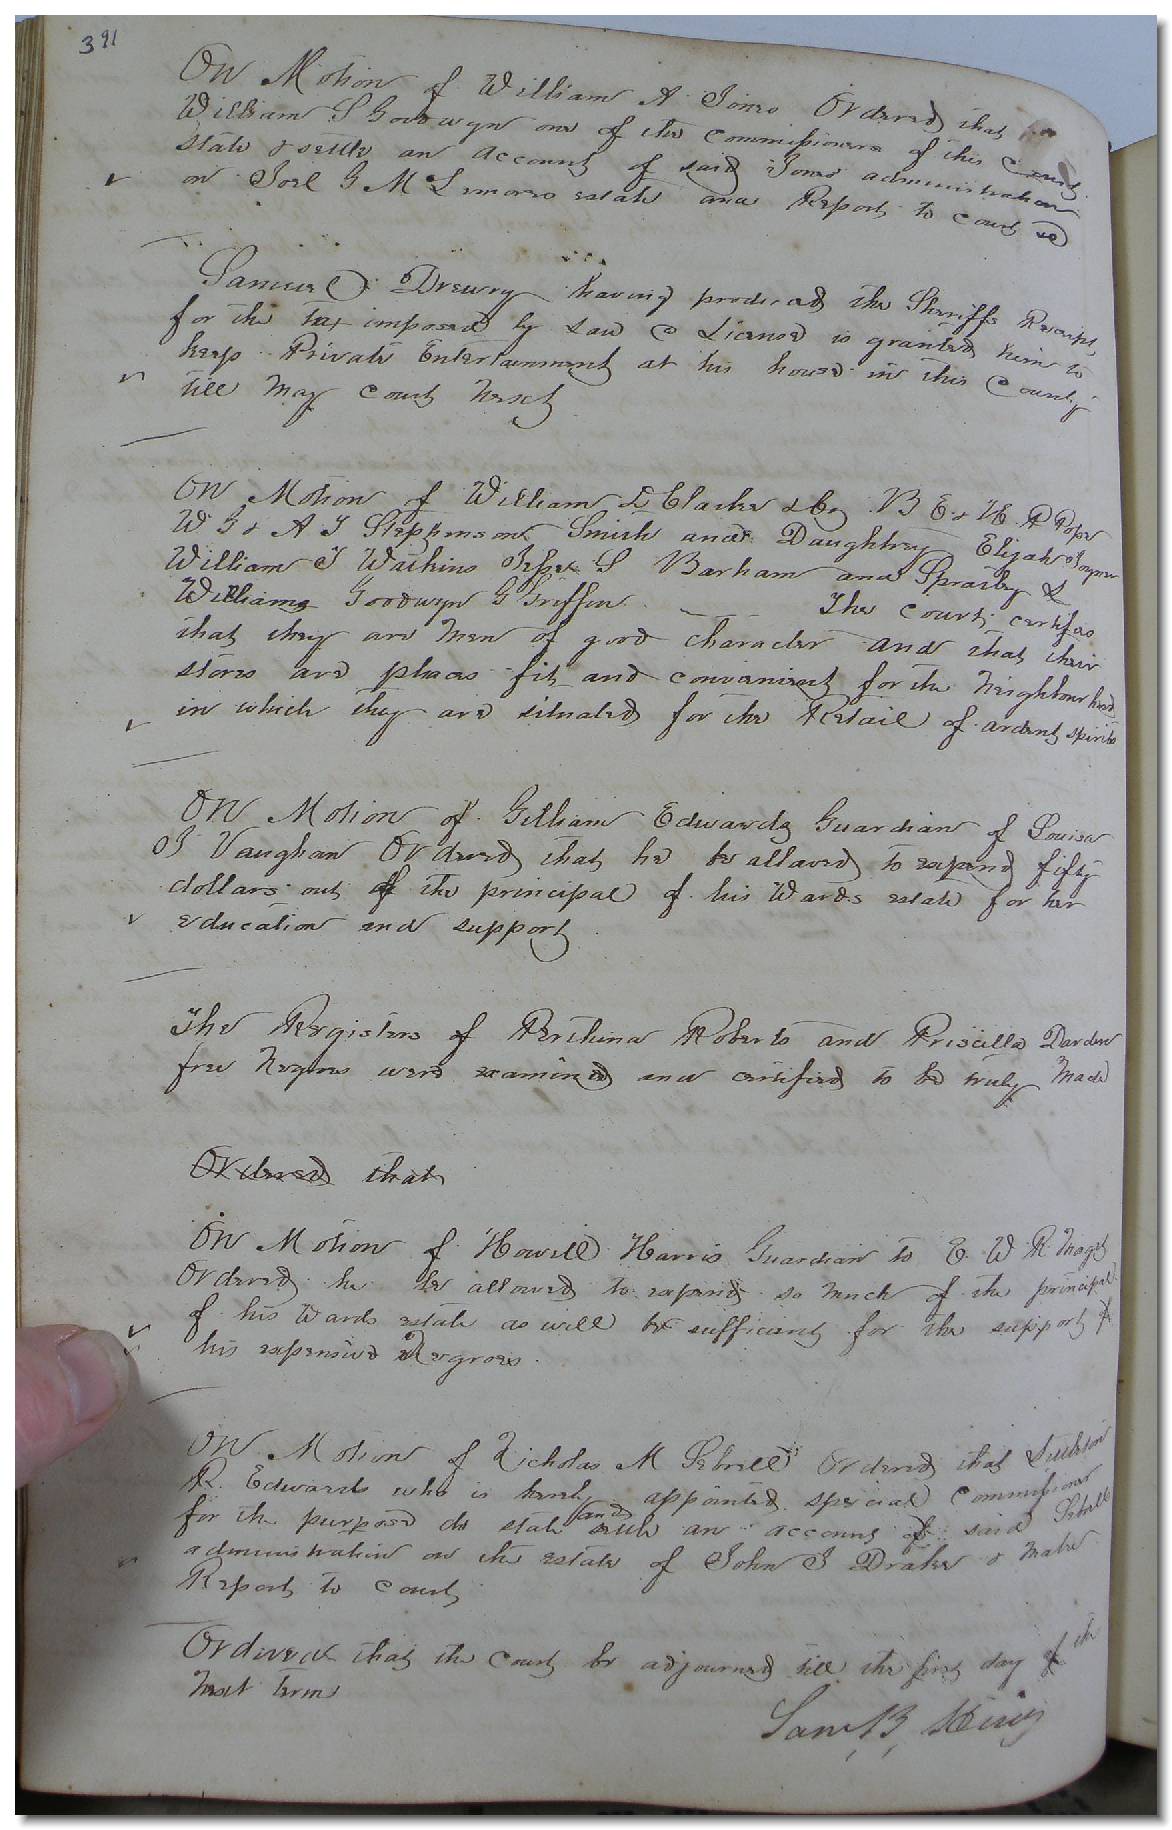 391
On Motion of William A Jones Ordered that
William S Goodwyn one of the Commissioners of this Court
state & settle an account of said Jones administration
on Joel G McLemores estate and Report to court
Samuel Drewry having produced the Sheriffs Receipt
for the tax imposed by Law a License is granted him to
keep Private Entertainment at his house in this County
till May Court Next
On Motion of William D Clarke & Co B E & H P Pope
W G & A J Stephenson Smith and Daughtrey Elijah Joyner
William J Watkins Jesse S Barham and Spratley &
Williams Goodwyn G Griffin The Court certifies
that they are men of good character and that their
stores are places fit and convenient for the Neighbourhood
in which they are situated for the Retail of ardent spirits
On Motion of Gilliam Edwards Guardian of Louisa
J Vaughan Ordered that he be allowed to expend fifty
dollars out of the principal of his Wards estate for her
education and support
The Registers of Perthina Roberts and Priscilla Darden
free Negroes were examined and certified to be truly Made
Ordered that
On Motion of Howell Harris Guardian to E W R
Ordered he be allowed to expend so much of the principal
of his Wards estate as will be sufficient for the support of
his expensive Negroes.
On Motion of Nicholas M Sebrell Ordered that Littleton
R. Edwards who is hereby appointed special Commissioner
for the purpose do state and settle an account of said Sebrells
administration on the estate of John J Drake & make
Report to Court
Ordered that the Court be adjourned till the first day of the
Next term
Saml B,